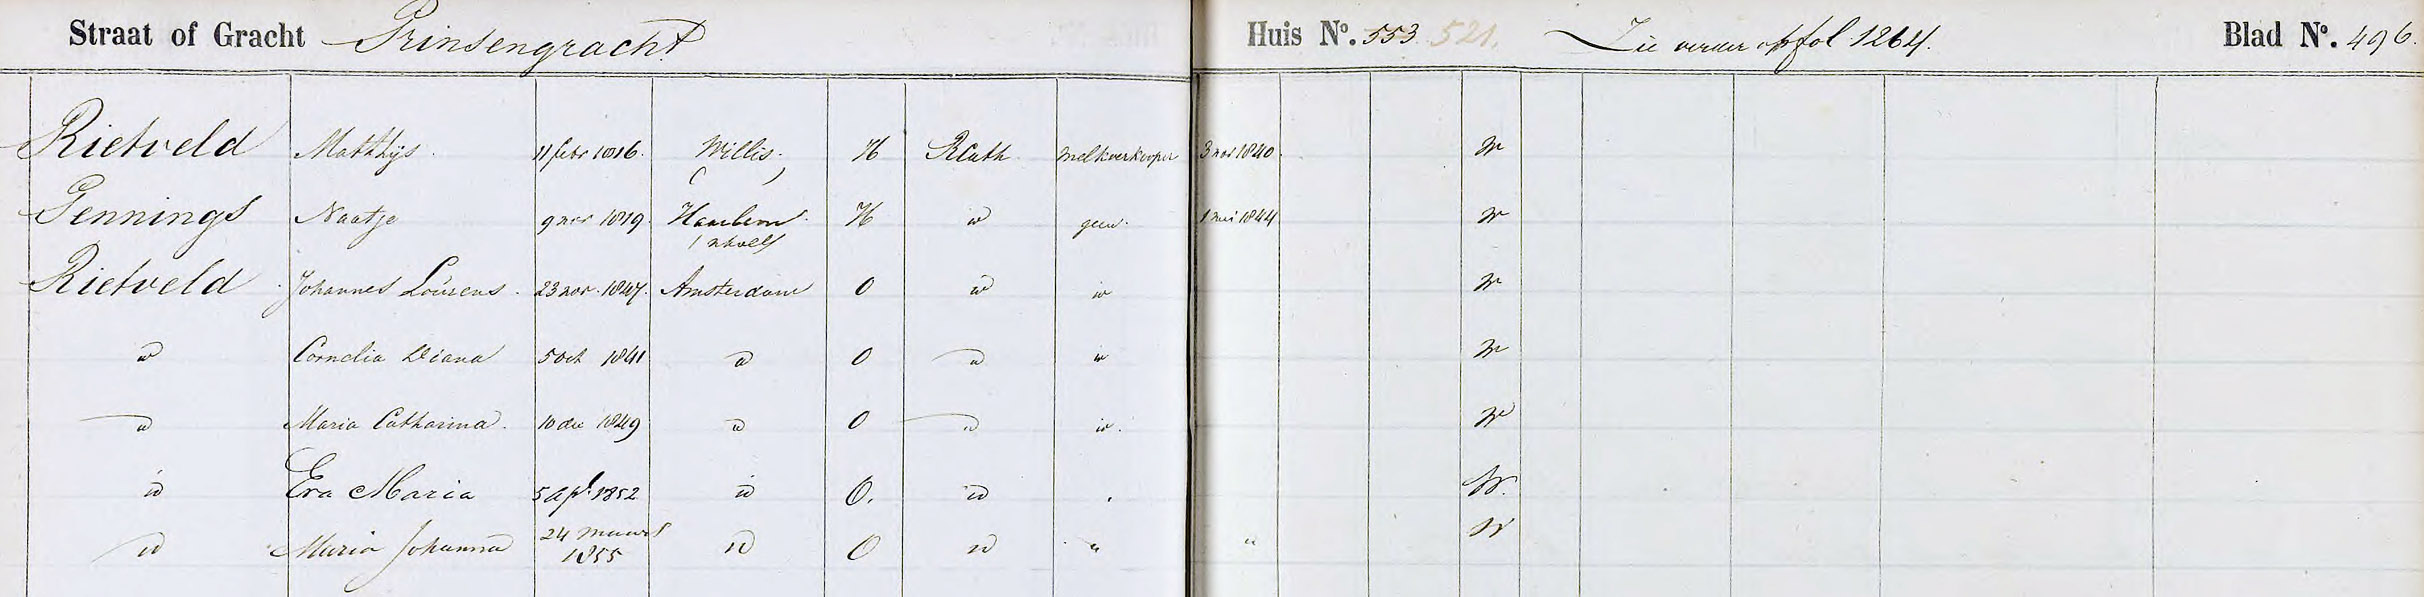 Straat of Gracht Prinsengracht Huis No. 553 521. Zie verder op fol 1264. Blad No. 496.
Rietveld Matthijs. 11 febr 1816. Willis. H RCath. melkverkooper 3 nov 1840. W
Gennings Naatje 9 nov 1819. Haarlem H id geen. 1 mei 1844 W
Rietveld Johannes Lourens. 23 nov. 1847. Amsterdam O id id W
id Cornelia Diana 5 Oct 1841 id O id id W
id Maria Catharina. 10 dec 1849 id O id id. W
id Eva Maria 5 apl. 1852 id O. id . W.
id Maria Johanna 24 maart 1855 id O id " " W